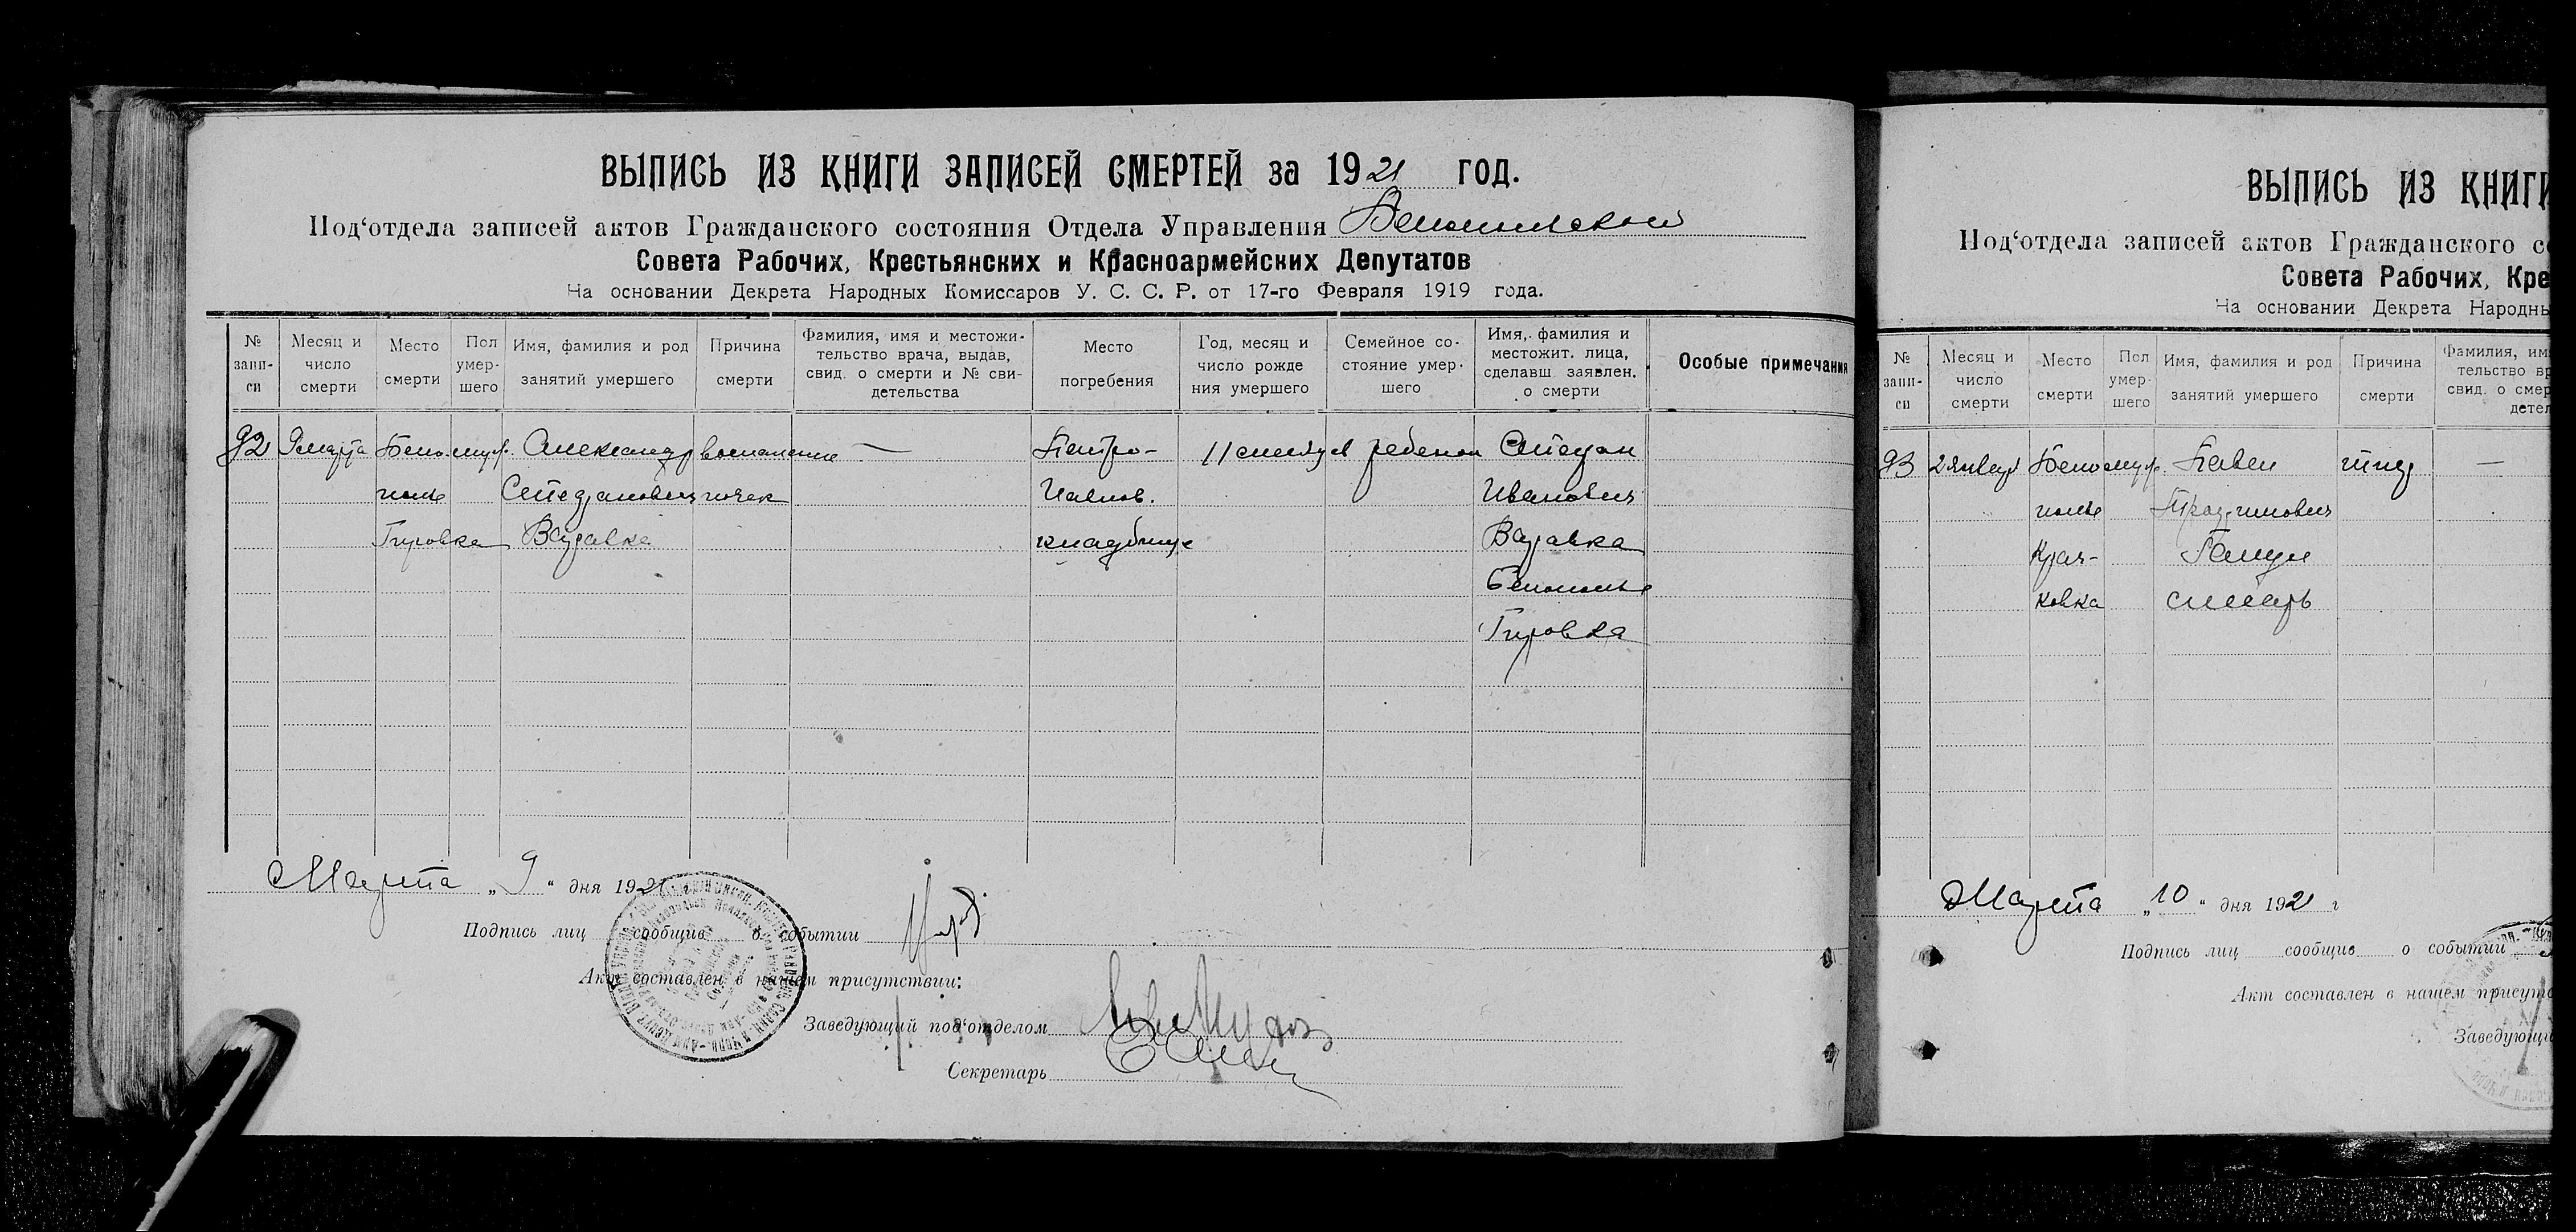 ВЫПИСЬ ИЗ КНИГИ ЗАПИСЕЙ СМЕРТЕЙ за 1921 год.
Под‘отдела записей актов Гражданского состояния Отдела Управления
Совета Рабочих, Крестьянских и Красноармейских Депутатов
На основании Декрета Народных Комиссаров У. С. С. Р. от 17-го Февраля 1919 года.
№ запи-
си
Месяц и
число
смерти
Место
смерти
Пол
умер-
шего
Имя, фамилия и род
занятий умершего
Причина
смерти
Фамилия, имя и местожи-
тельство врача, выдав,
свид. о смерти и № сви-
детельства
Место
погребения
Год, месяц и
число рожде
ния умершего
Семейное со-
стояние умер-
шего
Имя, фамилия и
местожит. лица,
сделавш. заявлен.
о смерти
Особые примечания
92 9 марта Бело- муж. Александр воспаление — Петро- 11 месяцев ребенок Степан
полье Степанович почек Павлов. Иванович
Гировка кладбище
Белополье
Гировка
Марта „9“ дня 1921 г
Подпись лиц сообщив о событии
Акт составлен в нашем присутствии:
Заведующий под‘отделом
Секретарь
ВЫПИСЬ ИЗ КНИГИ
Под‘отдела записей актов Гражданского со
Совета Рабочих, Кре
На основании Декрета Народны
№
запи-
си
Месяц и
число
смерти
Место
смерти
Пол
умер-
шего
Имя, фамилия и род
занятий умершего
Причина
смерти
Фамилия, им
тельство вр
свид. о смер
детел
93 2 января Бело муж. Павел тиф —
полье
Крач-
ковка слесарь
Марта „10“ дня 1921 г
Подпись лиц сообщив о событии
Акт составлен в нашем присутс
Заведующи